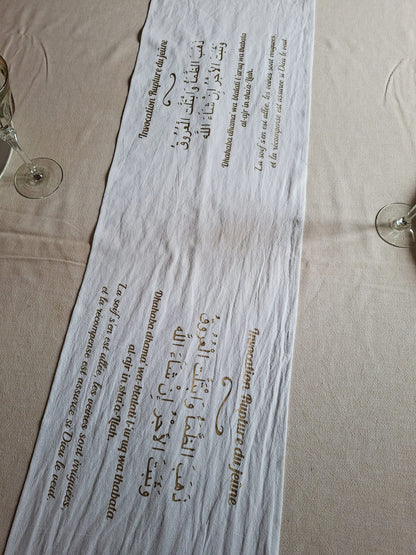 Invocation Rupture du jeûne
ذَهَبَ الظَّمَأُ وَابْتَلَّتِ الْعُرُوقُ
وَثَبَتَ الْأَجْرُ إِنْ شَاءَ اللَّه
Dhahaba dhama wa-btalati l-'uruq wa thabata
al-ajr in sha'a-llah.
La soif s'en est allée, les veines sont irriguées,
et la récompense est assurée si Dieu le veut.
Invocation Rupture du jeûne
ذَهَبَ الظَّمَأُ وَابْتَلَّتِ الْعُرُوقُ
وَثَبَتَ الْأَجْرُ إِنْ شَاءَ اللَّه
Dhahaba dhama wa-btalati l-'uruq wa thabata
al-ajr in sha'a-llah.
La soif s'en est allée, les veines sont irriguées,
et la récompense est assurée si Dieu le veut.